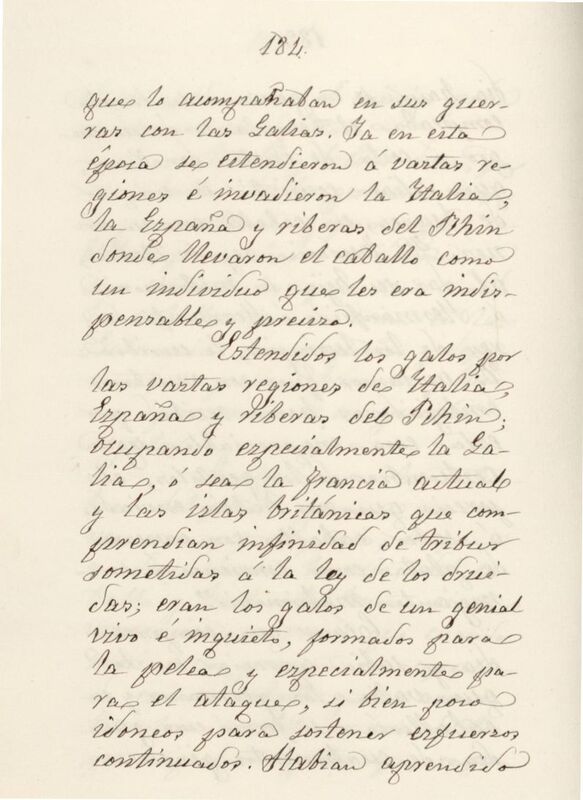 184.
que lo acompañaban en sus guer-
ras con las Galias. Ya en esta
época se estendieron á vastas re-
giones é invadieron la Italia,
la España y riberas del Rhin
donde llevaron el caballo como
un individuo que les era indis-
pensable y preciso.
Estendidos los galos por
las vastas regiones de Italia,
España y riberas del Rhin;
ocupando especialmente la Ga-
lia, ó sea la francia actual
y las islas británicas que com-
prendian infinidad de tribus
sometidas á la ley de los drui-
das; eran los galos de un genial
vivo é inquieto, formados para
la pelea y especialmente pa-
ra el ataque, si bien poco
idoneos para sostener esfuerzos
continuados. Habian aprendido